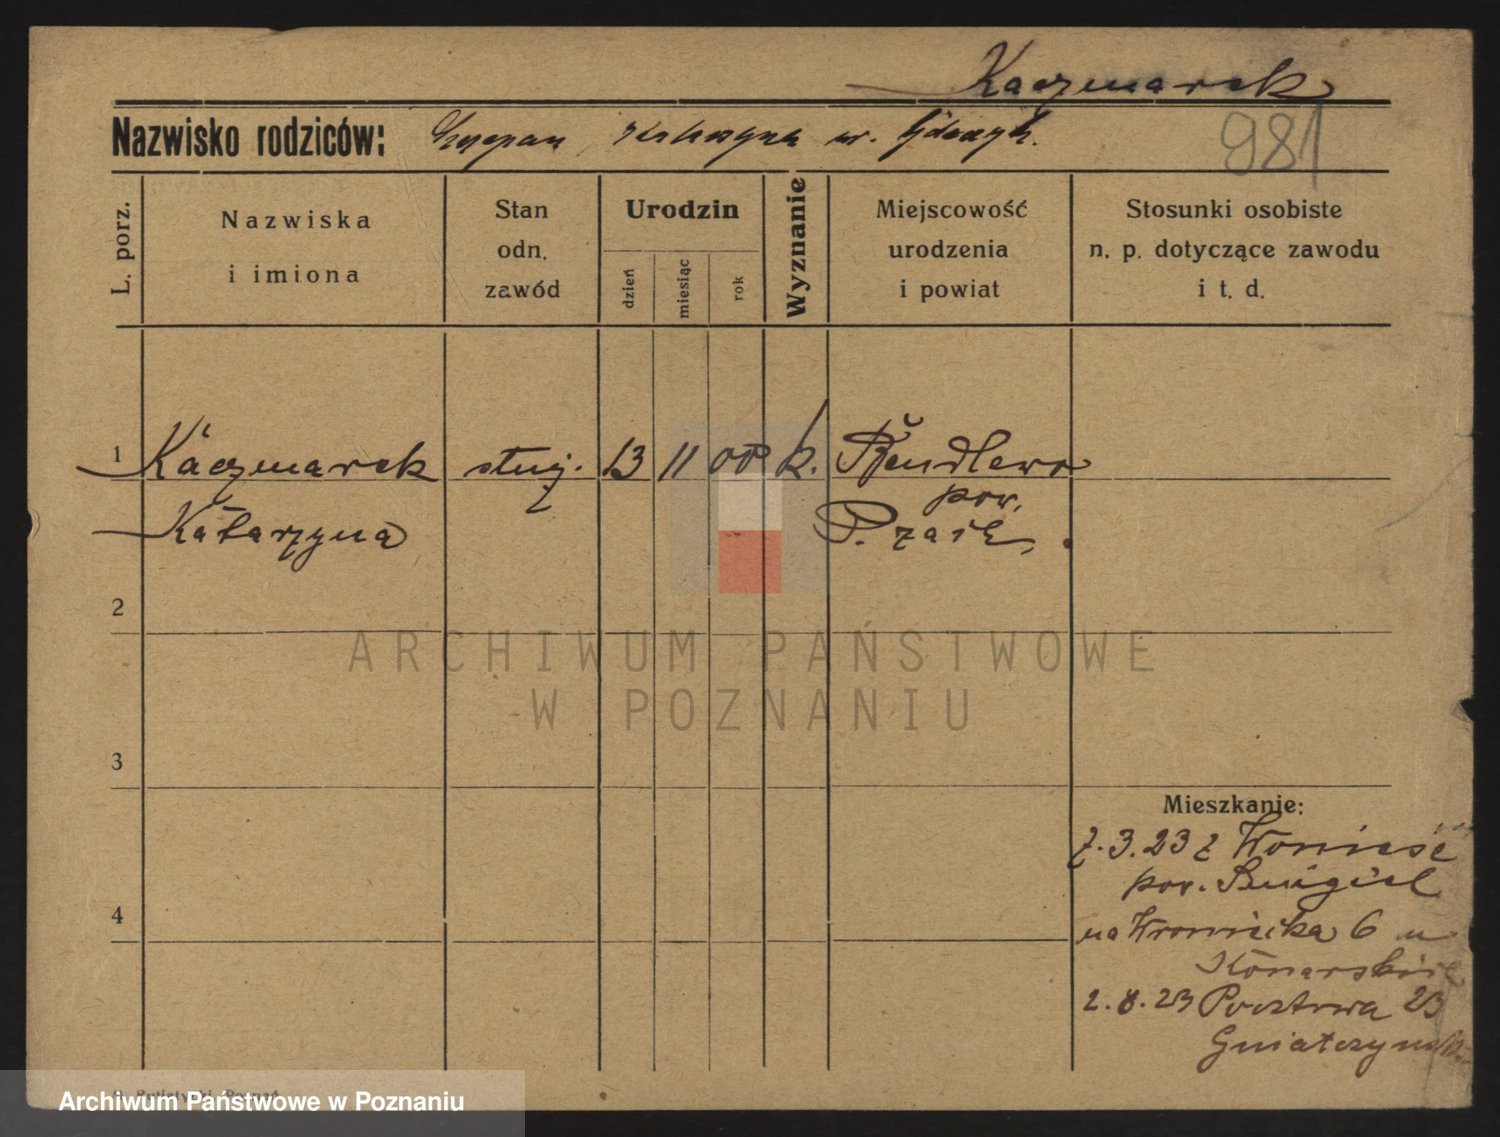 Kaczmarek
981
Nazwisko rodziców: Szczepan, Katarzyna ur.
L. porz.
Nazwiska
i imiona
Stan
odn.
zawód
Urodzin
dzień
miesiąc
rok
Wyznanie
Miejscowość
urodzenia
i powiat
Stosunki osobiste
n. p. dotyczące zawodu
i t. d.
1 Kaczmarek służ. 13 11 00 k.
Katarzyna
pow.
2
3
4
Mieszkanie:
7.3.23 z Wonieść
pow. Śmigiel
na Wroniecka 6 u
2.8.23 Pocztowa 23
ARCHIWUM PAŃSTWOWE
W POZNANIU
Archiwum Państwowe w Poznaniu